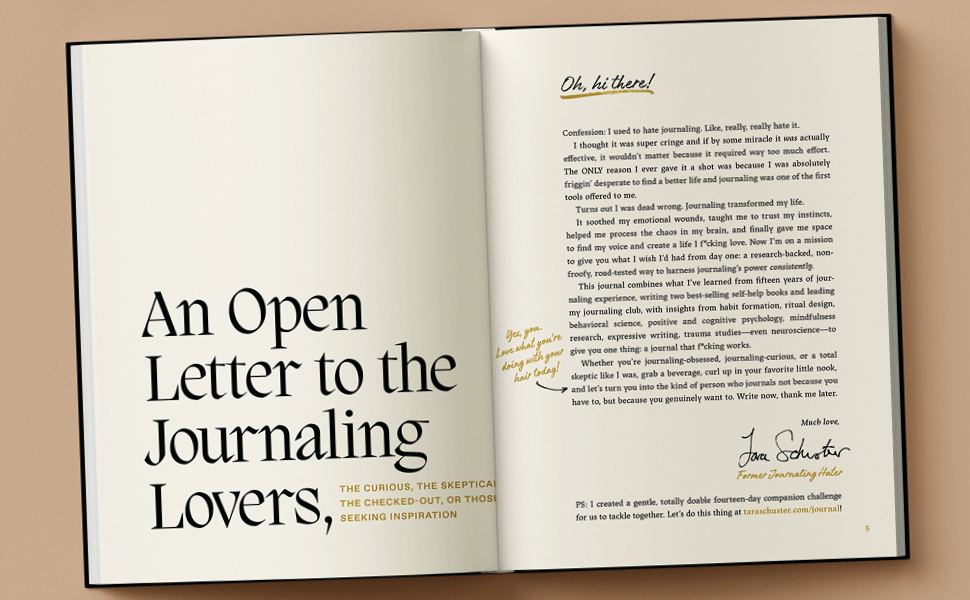 An Open
Letter to the
Journaling
Lovers,
THE CURIOUS, THE SKEPTICAL
THE CHECKED-OUT, OR THOSE
SEEKING INSPIRATION
Oh, hi there!
Confession: I used to hate journaling. Like, really, really hate it.
I thought it was super cringe and if by some miracle it was actually
effective, it wouldn't matter because it required way too much effort.
The ONLY reason I ever gave it a shot was because I was absolutely
friggin' desperate to find a better life and journaling was one of the first
tools offered to me.
Turns out I was dead wrong. Journaling transformed my life.
It soothed my emotional wounds, taught me to trust my instincts,
helped me process the chaos in my brain, and finally gave me space
to find my voice and create a life I f*cking love. Now I'm on a mission
to give you what I wish I'd had from day one: a research-backed, non-
froofy, road-tested way to harness journaling's power consistently.
This journal combines what I've learned from fifteen years of jour-
naling experience, writing two best-selling self-help books and leading
my journaling club, with insights from habit formation, ritual design,
behavioral science, positive and cognitive psychology, mindfulness
research, expressive writing, trauma studies—even neuroscience—to
give you one thing: a journal that f*cking works.
Whether you're journaling-obsessed, journaling-curious, or a total
skeptic like I was, grab a beverage, curl up in your favorite little nook,
and let's turn you into the kind of person who journals not because you
have to, but because you genuinely want to. Write now, thank me later.
Yes, you.
Love what you're
doing with your
hair today!
Much love,
Tara Schuster
Former Journaling Hater
PS: I created a gentle, totally doable fourteen-day companion challenge
for us to tackle together. Let's do this thing at taraschuster.com/journal!
5